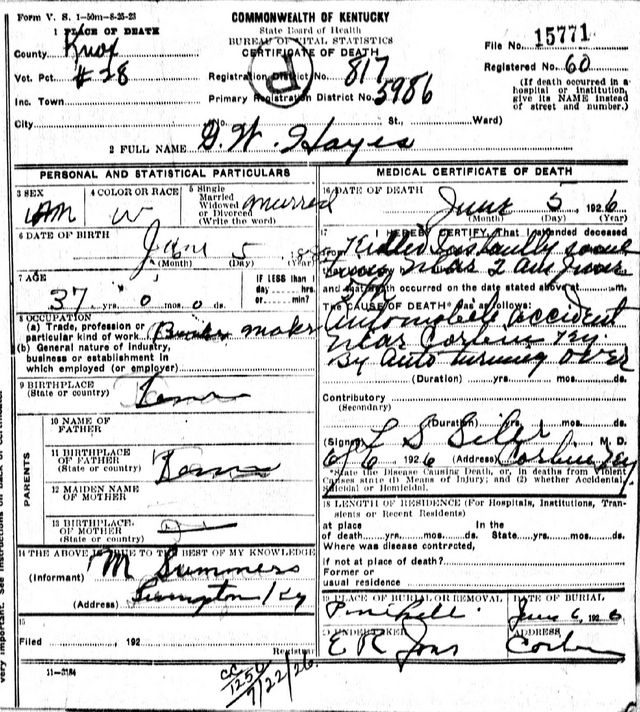 Form V. S. 1-50m-8-25-23
COMMONWEALTH OF KENTUCKY
State Board of Health
BUREAU OF VITAL STATISTICS
CERTIFICATE OF DEATH
1 PLACE OF DEATH
County Knox
Vot. Pct. #38
Inc. Town
City
Registration District No. 817
Primary Registration District No. 5986
File No. 15771
Registered No. 60
(If death occurred in a
hospital or institution,
give its NAME instead
of street and number.)
No. St., Ward)
2 FULL NAME G. W. Hayes
PERSONAL AND STATISTICAL PARTICULARS
3 SEX M
4 COLOR OR RACE W
5 Single
Married
Widowed
or Divorced
(Write the word)
Married
6 DATE OF BIRTH
June 5
(Month) (Day)
7 AGE
37 yrs. 0 mos. 0 ds.
IF LESS than 1
day hrs.
or min.
8 OCCUPATION
(a) Trade, profession or
particular kind of work maker
(b) General nature of industry,
business or establishment in
which employed (or employer)
9 BIRTHPLACE
(State or country)
Tenn
PARENTS
10 NAME OF
FATHER
11 BIRTHPLACE
OF FATHER
(State or country)
Tenn
12 MAIDEN NAME
OF MOTHER
13 BIRTHPLACE
OF MOTHER
(State or country)
14 THE ABOVE IS TRUE TO THE BEST OF MY KNOWLEDGE
(Informant) M Summers
(Address) Livingston Ky
15
Filed , 192
Registrar
11-3184
CC
1250
7/22/26
MEDICAL CERTIFICATE OF DEATH
16 DATE OF DEATH
June 5 1926
(Month) (Day) (Year)
17 I HEREBY CERTIFY, That I attended deceased
Killed Instantly some
near 2 AM
and that death occurred on the date stated above at m.
The CAUSE OF DEATH* was as follows:
Automobile accident
near Corbin Ky.
By Auto turning over
(Duration) yrs. mos. ds.
Contributory
(Secondary)
(Duration) yrs. mos. ds.
(Signed) L S Siler M. D.
6/6 1926 (Address) Corbin Ky.
*State the Disease Causing Death, or, in deaths from Violent
Causes state (1) Means of Injury; and (2) whether Accidental,
Suicidal or Homicidal.
18 LENGTH OF RESIDENCE (For Hospitals, Institutions, Tran-
sients or Recent Residents)
at place In the
of death yrs. mos. ds. State yrs. mos. ds.
Where was disease contracted,
if not at place of death?
Former or
usual residence
19 PLACE OF BURIAL OR REMOVAL DATE OF BURIAL
June 6, 1926
20 UNDERTAKER ADDRESS
E R Jones Corbin